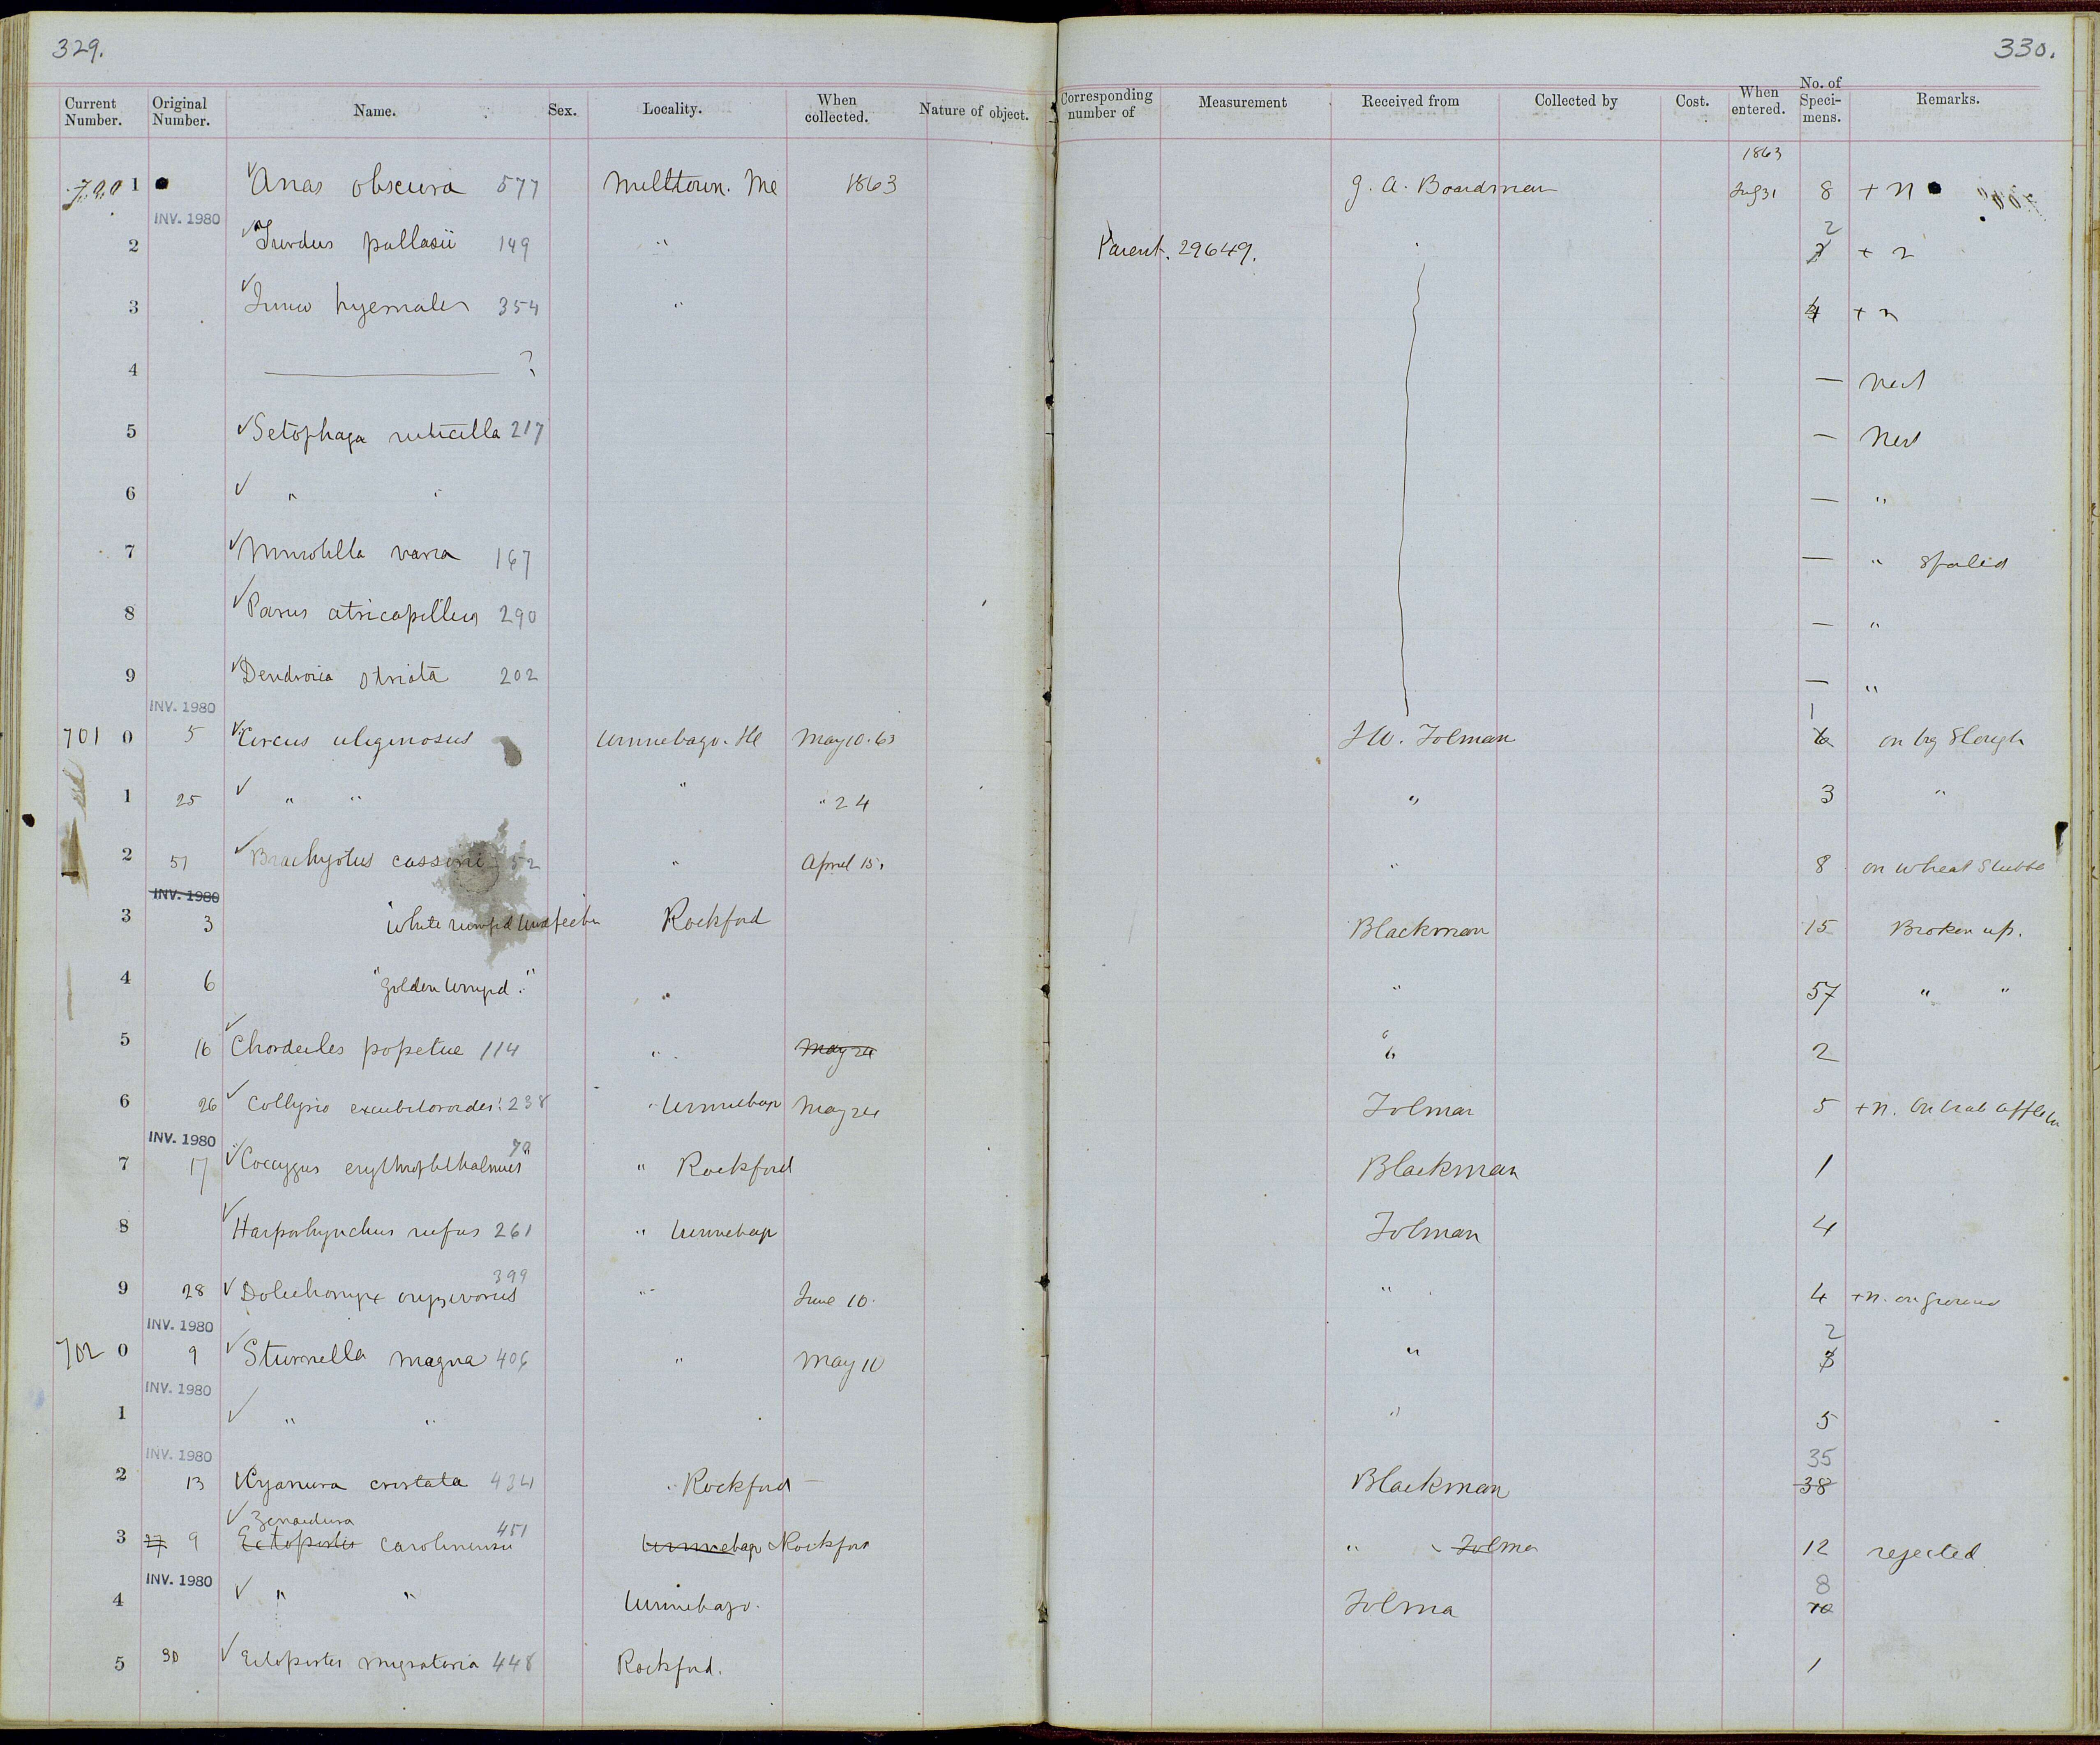 329.
330.
Current Number. Original Number. Name. Sex. Locality. When collected. Nature of object. Corresponding number of Measurement Received from Collected by Cost. When entered. No. of Speci-mens. Remarks.
1863
1 Anas obscura 577 Milltown. Me 1863 G. A. Boardman 31 8 + n
INV. 1980
2 Turdus pallasii 149 " Parent. 29649. 2 + n
3 Junco hyemalis 354 " 4 + n
4 ——— ? — Nest
5 Setophaga ruticilla 217 — Nest
6 " " — "
7 Mniotilta varia 167 — " Spoiled
8 Parus atricapillus 290 — "
9 Dendroica striata 202 — "
INV. 1980
701 0 5 Circus uliginosus Winnebago. Ill May 10. 63 J W. Tolman 1 6 on big Slough
1 25 " " " " 24 " 3 "
2 51 Brachyotus cassinii 52 " April 15. " 8 on wheat Stubble
INV. 1980
3 3 "white rumpd Woodpecker Rockford Blackman 15 Broken up.
4 6 "golden rumpd." " " 57 " "
5 16 Chordeiles popetue 114 " May 24 " 2
6 26 Collyrio excubitoroides 238 " Winnebago May 24 Tolman 5 + n. On crab apple
INV. 1980
7 17 Coccygus erythrophthalmus 70 " Rockford Blackman 1
8 Harporhynchus rufus 261 " Winnebago Tolman 4
9 28 Dolichonyx oryzivorus 399 " June 10. " 4 + n. on ground
INV. 1980
702 0 9 Sturnella magna 406 " May 10 " 2 3
INV. 1980
1 " " " 5
INV. 1980
2 13 Cyanura cristata 434 " Rockford — Blackman 35 38
3 27 9 Zenaidura Ectopistes carolinensis 451 Winnebago Rockford " Tolman 12 rejected
INV. 1980
4 " " Winnebago. Tolma 8 10
5 30 Ectopistes migratoria 448 Rockford. 1